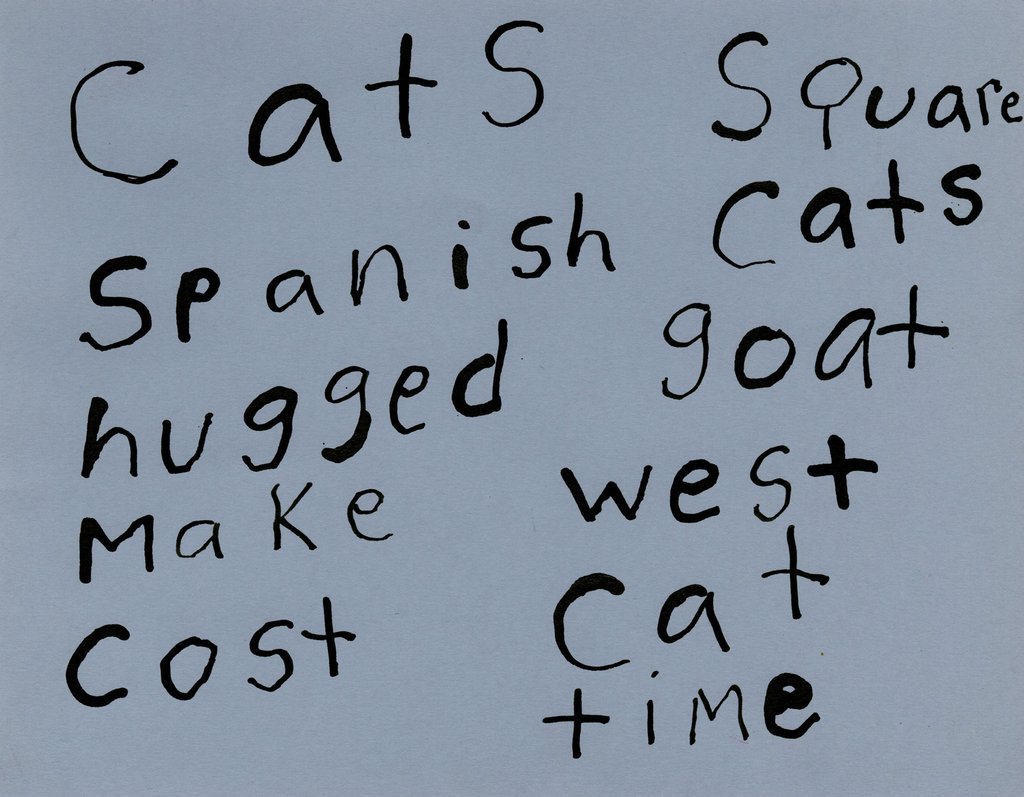 Cats
Spanish
hugged
Make
Cost
Square
Cats
goat
west
Cat
time